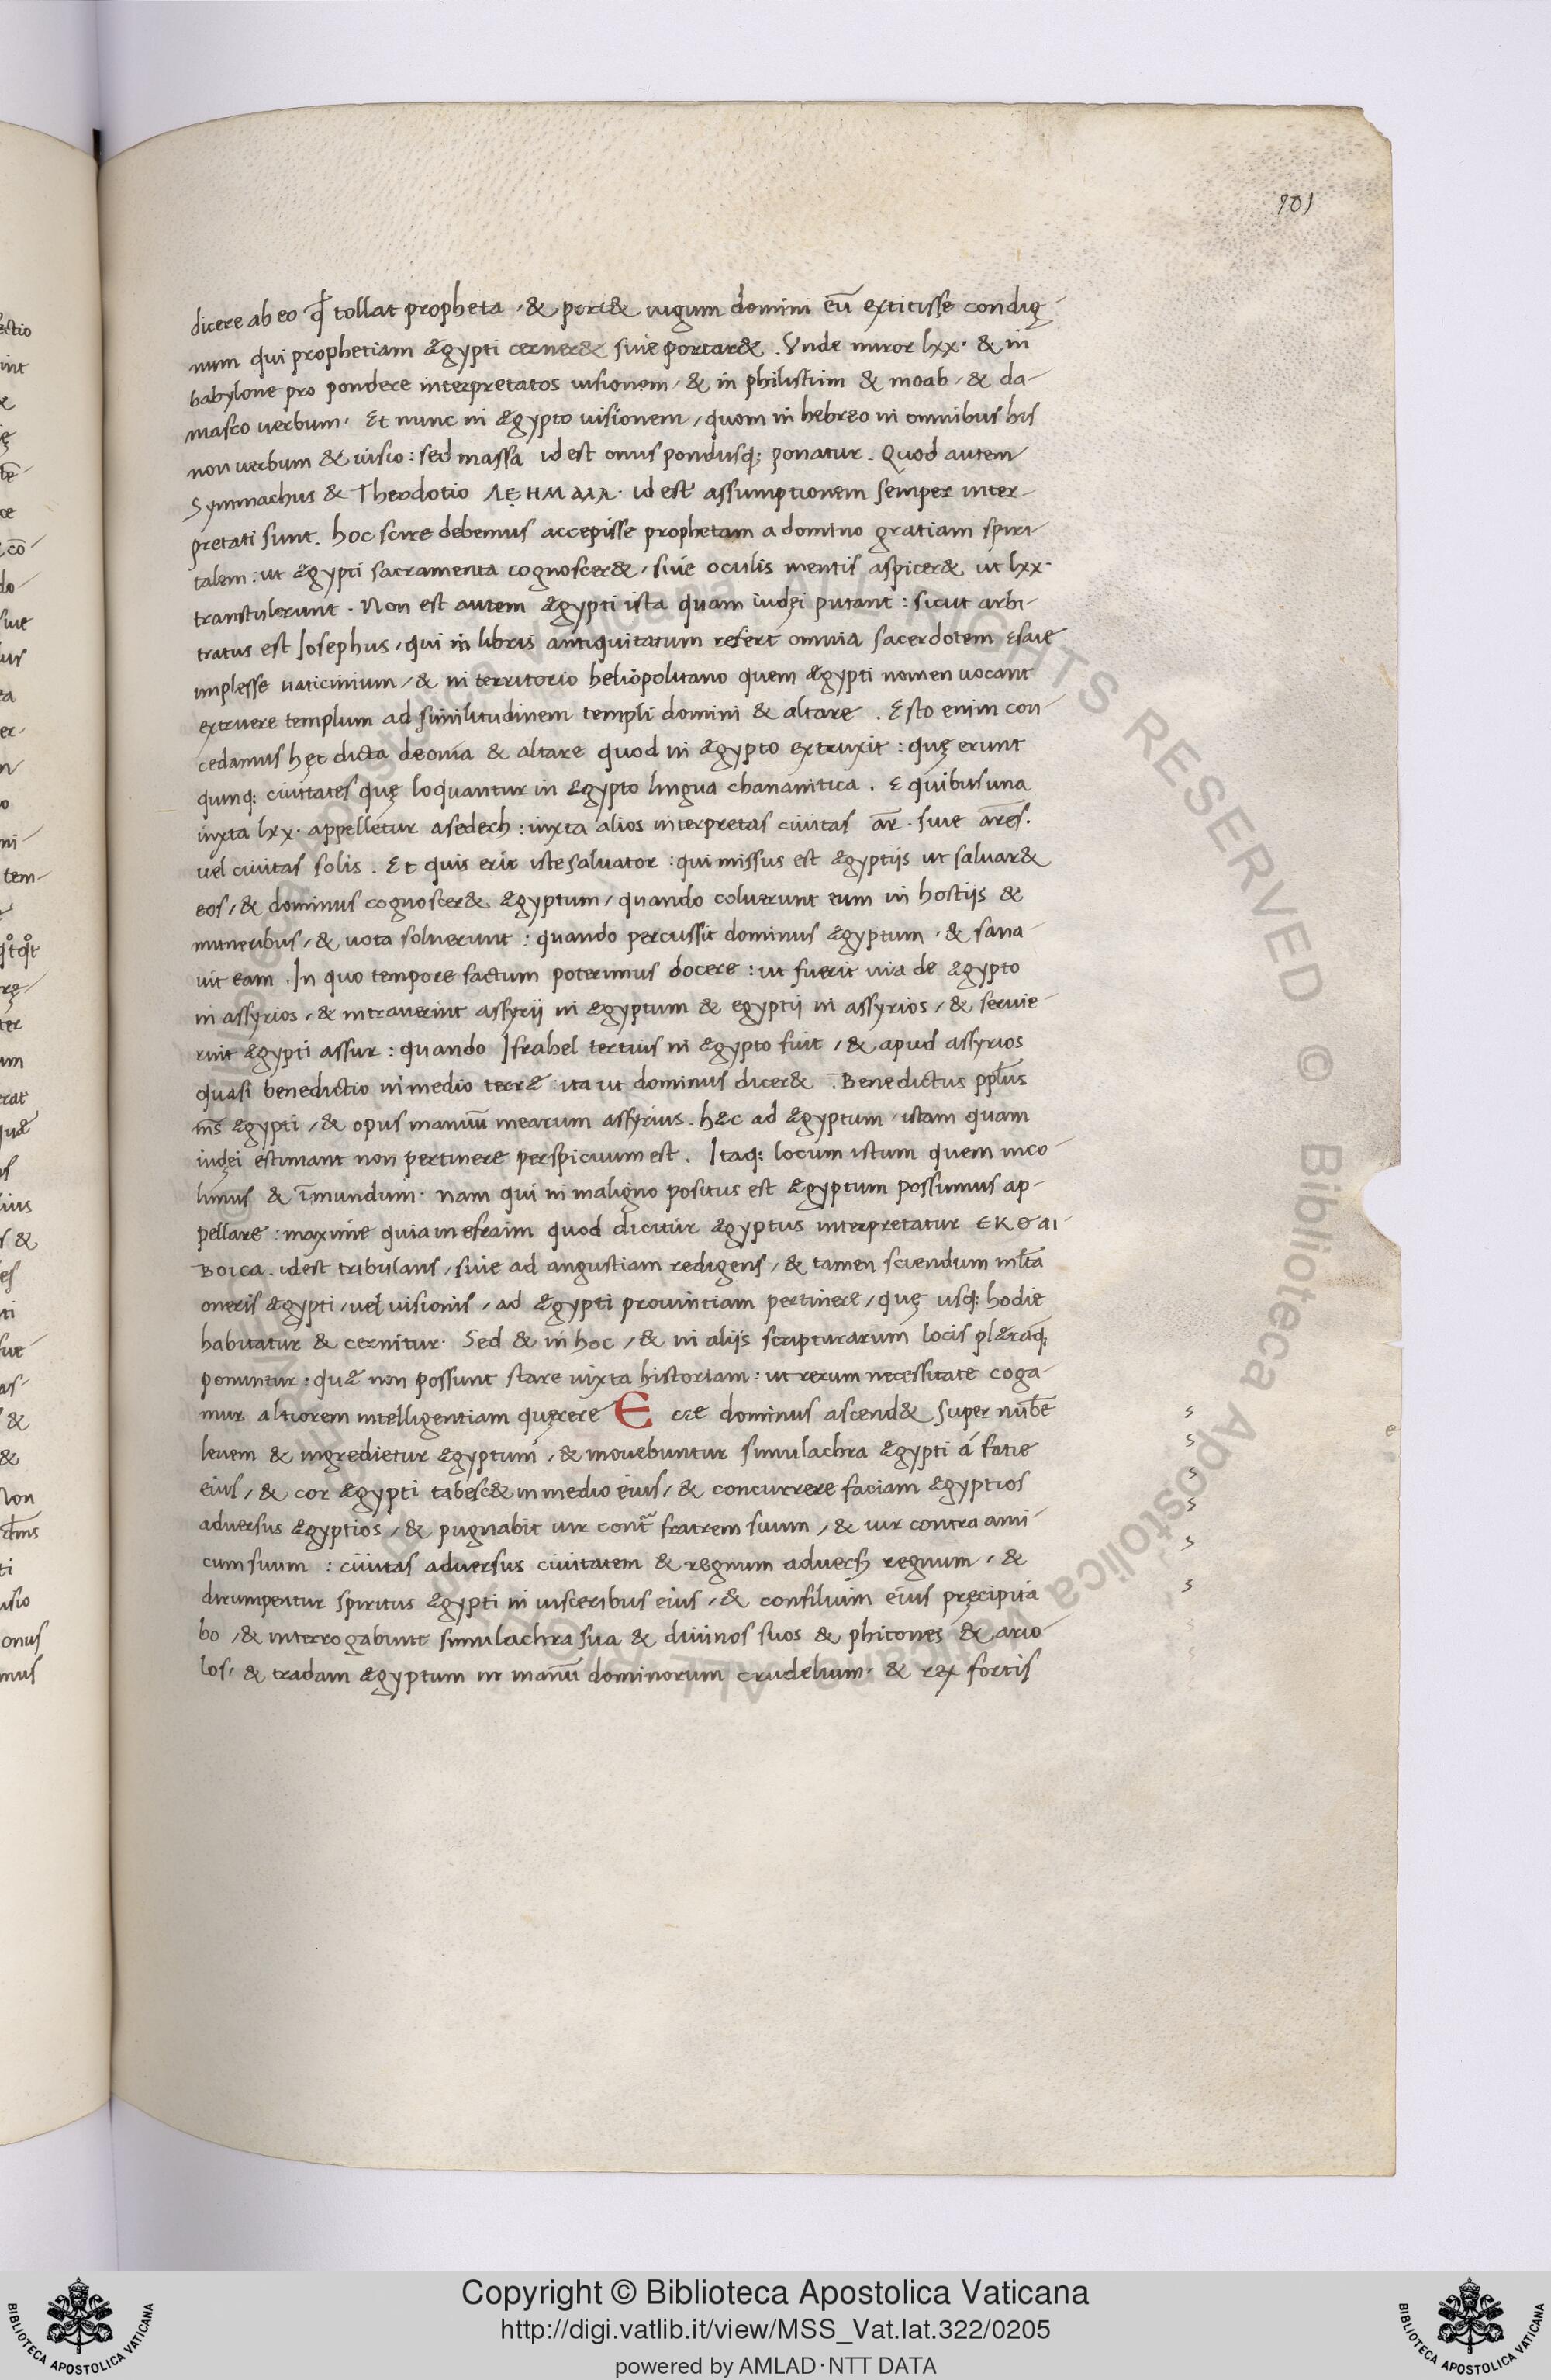 101
dicere ab eo ꝙ tollat propheta, & port& iugum domini eū extitisse condig-
num qui prophetiam ægypti cerner& siue portar&. Vnde miror lxx. & in
babylone pro pondere interpretatos uisionem, & in philistiim & moab, & da-
masco uerbum. Et nunc in ægypto uisionem, quom in hebreo in omnibus his
non uerbum & uisio: sed massa id est onus pondusq; ponatur. Quod autem
Symmachus & Theodotio ΛΕΗΜΑΛΑ. id est assumptionem semper inter-
pretati sunt. hoc scire debemus accepisse prophetam a domino gratiam spiri-
talem: ut ægypti sacramenta cognoscer&, siue oculis mentis aspicer& ut lxx.
transtulerunt. Non est autem ægypti ista quam iudęi putant: sicut arbi-
tratus est Iosephus, qui in libris antiquitatum refert omnia sacerdotem esaie
implesse uaticinium, & in territorio heliopolitano quem ægypti nomen uocant
extruere templum ad similitudinem templi domini & altare. Esto enim con-
cedamus hęc dicta de onia & altare quod in ægypto extruxit: quę erunt
quinq; ciuitates quę loquantur in ægypto lingua chananitica. E quibus una
iuxta lxx. appelletur asedech: iuxta alios interpretas ciuitas ar̄. siue ar̄es.
uel ciuitas solis. Et quis erit iste saluator: qui missus est ægyptijs ut saluar&
eos, & dominus cognoscer& ægyptum, quando coluerunt eum in hostijs &
muneribus, & uota soluerunt: quando percussit dominus ægyptum, & sana-
uit eam. In quo tempore factum poterimus docere: ut fuerit uia de ægypto
in assyrios, & intrauerint assyrij in ægyptum & egyptij in assyrios, & seruie-
rint ægypti assur: quando Israhel tertius in ægypto fuit, & apud assyrios
quasi benedictio in medio terræ: ita ut dominus dicer&. Benedictus ppl̄us
m̄s ægypti, & opus manuū mearum assyrius. hæc ad ægyptum, istam quam
iudęi estimant non pertinere perspicuum est. Itaq; locum istum quem inco-
limus & īmundum. nam qui in maligno positus est ægyptum possumus ap-
pellare: maxime quia mesraim quod dicitur ægyptus interpretatur ЄΚΘΑΙ
ΒΟΙCΑ. id est tribulans, siue ad angustiam redigens, & tamen sciendum ml̄ta
oneris ægypti, uel uisionis, ad ægypti prouintiam pertinere, quę usq; hodie
habitatur & cernitur. Sed & in hoc, & in alijs scripturarum locis plæraq;
ponuntur: quæ non possunt stare iuxta historiam: ut rerum necessitate coga-
mur altiorem intelligentiam quęrere Ecce dominus ascend& super nub̄e
leuem & ingredietur ægyptum, & mouebuntur simulachra ægypti á facie
eius, & cor ægypti tabesc& in medio eius, & concurrere faciam ægyptios
aduersus ægyptios, & pugnabit uir cont̄ fratrem suum, & uir contra ami-
cum suum: ciuitas aduersus ciuitatem & regnum aduersꝰ regnum, &
dirumpentur spiritus ægypti in uisceribus eius, & consilium eius pręcipita
bo, & interrogabunt simulachra sua & diuinos suos & phitones & ario
los, & tradam ægyptum in manū dominorum crudelium. & rex fortis
Copyright © Biblioteca Apostolica Vaticana
http://digi.vatlib.it/view/MSS_Vat.lat.322/0205
powered by AMLAD·NTT DATA